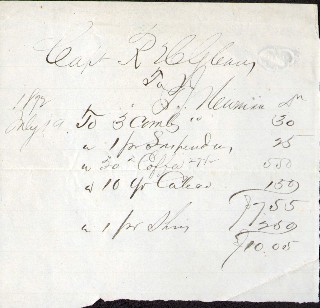 Capt R H Gleaves
To J. Neumin Dr
1892
May 19 To 3 Combs " 30
" 1 pr Suspenders 25
" 20 " Coffee 550
" 10 yr Calico 150
$7.55
" 1 pr Shoes 250
$10.05